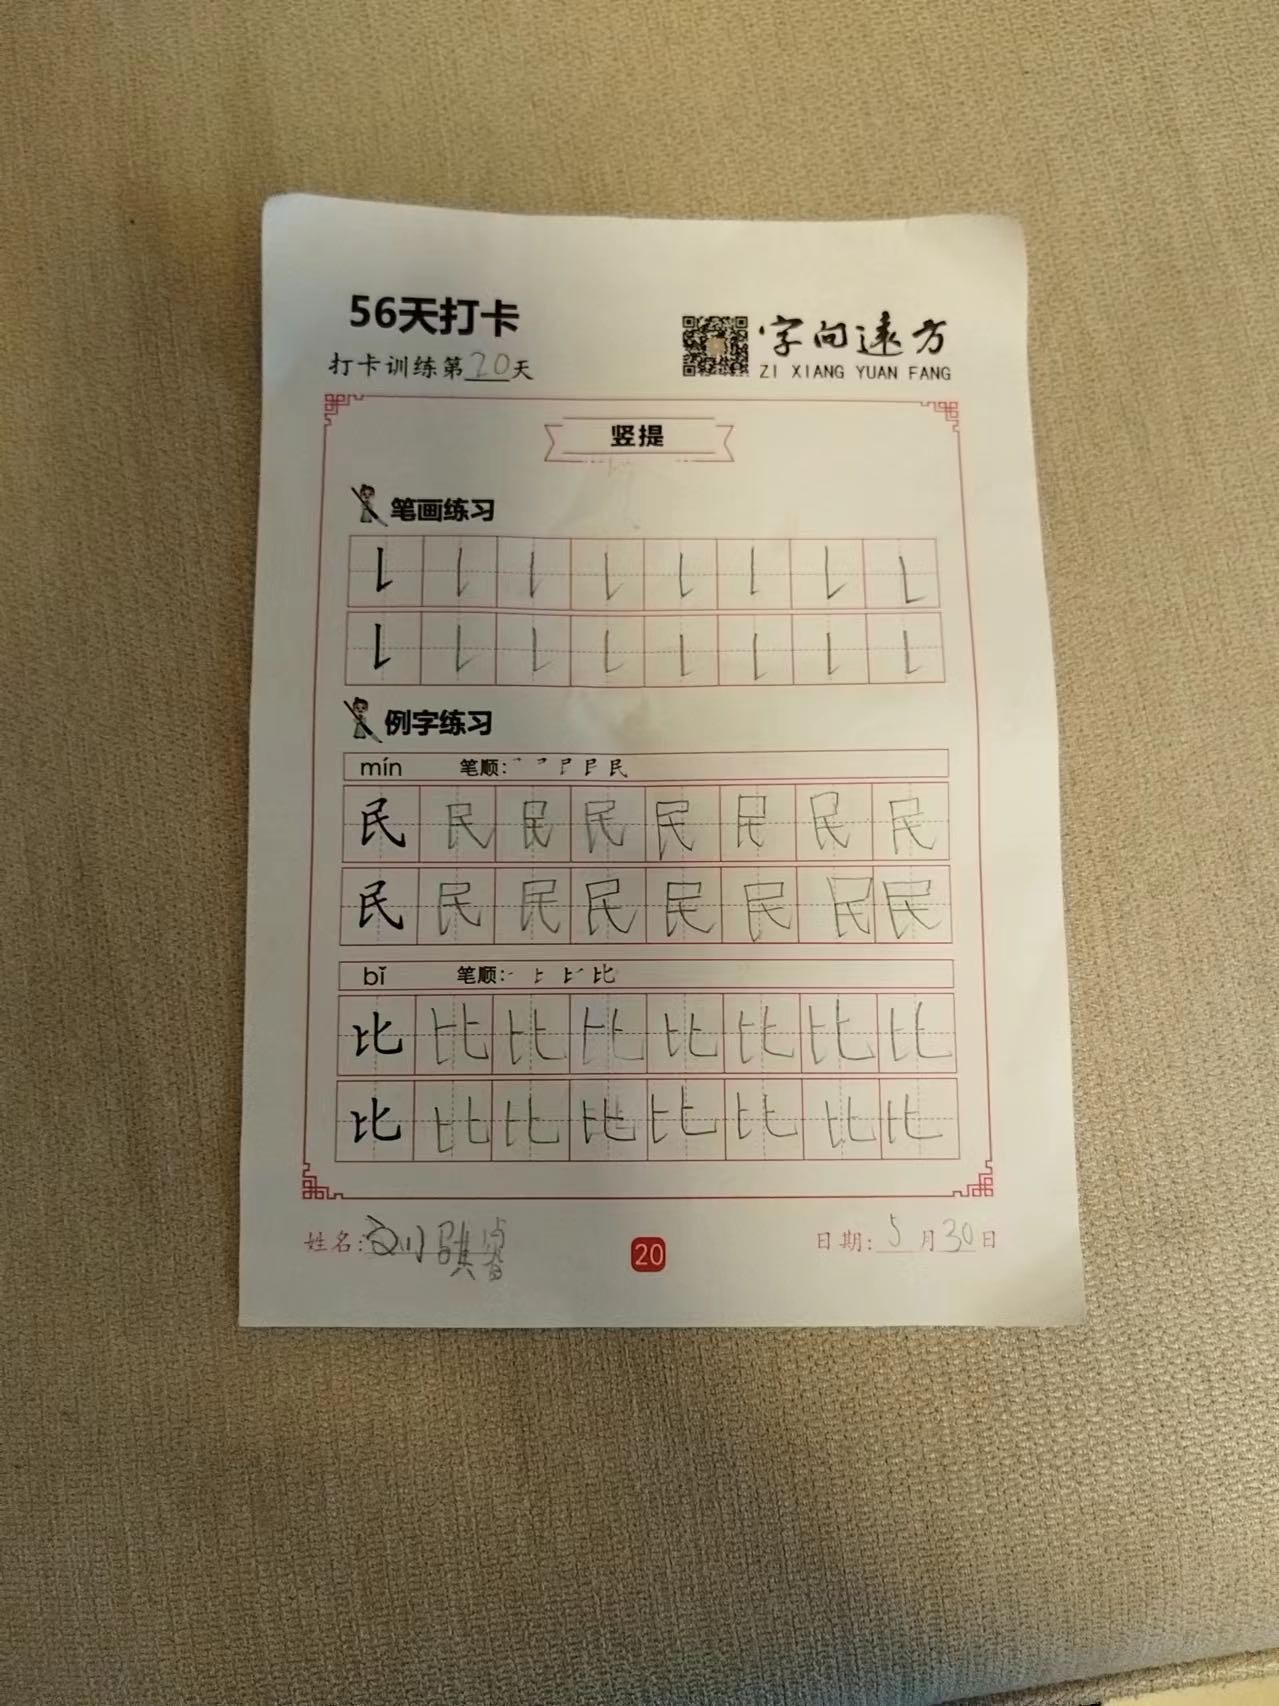 56天打卡
打卡训练第20天
字向远方
ZI XIANG YUAN FANG
竖提
笔画练习
例字练习
mín 笔顺:
民 民 民 民 民 民 民 民
民 民 民 民 民 民 民 民
bǐ 笔顺:
比 比 比 比 比 比 比 比
比 比 比 比 比 比 比 比
姓名:刘骐睿
20
日期:5月30日